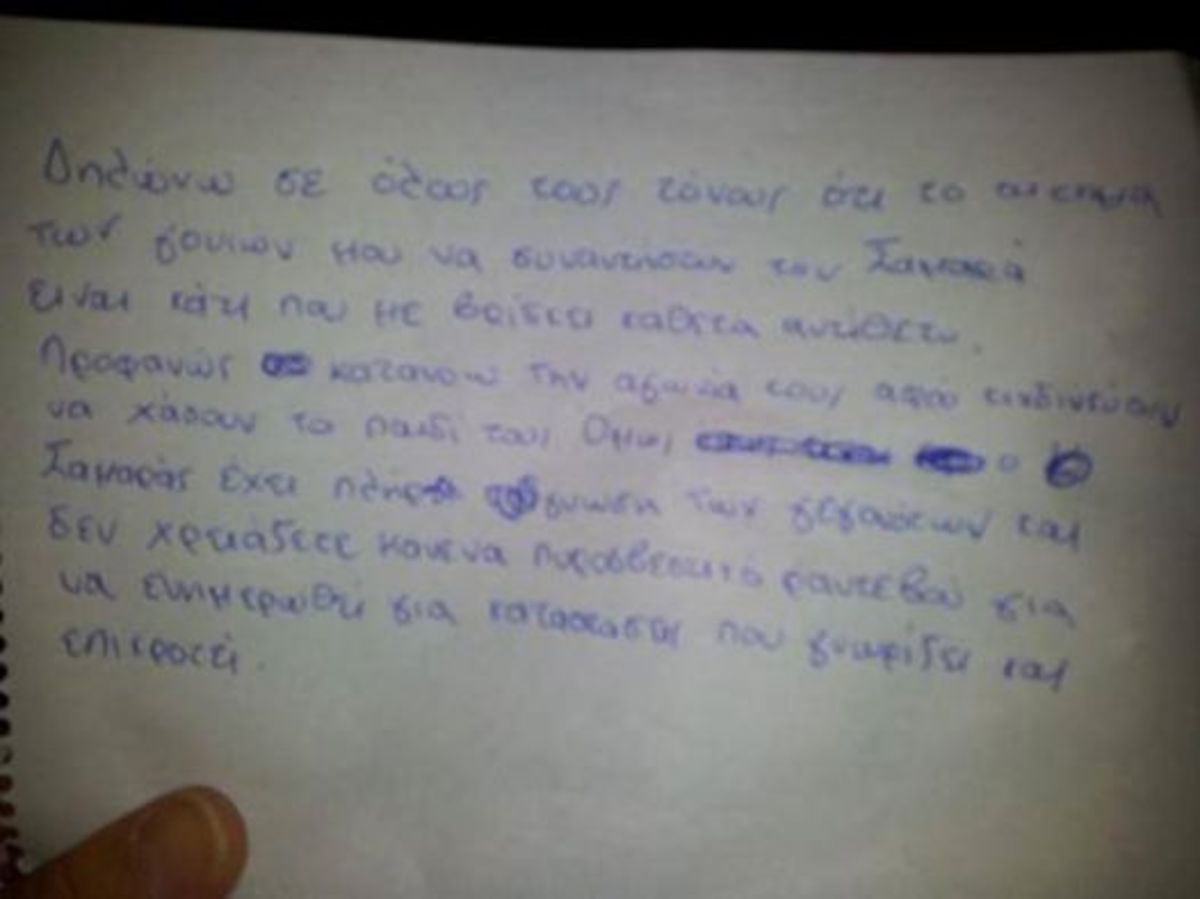 Δηλώνω σε όλους τους τόνους ότι το αίτημα
των γονιων μου να συναντήσουν τον Σαμαρά
ειναι κάτι που με βρίσκει καθετα αντίθετο.
Προφανώς κατανοω την αγωνία τους αφού κινδυνεύουν
να χάσουν το παιδί τους Ομως ο
Σαμαράς έχει πλήρη γνωση των γεγονότων και
δεν χρειάζεται κανενα πυροσβεστικό ραντεβού για
να ενημερωθεί για καταστασεις που γνωρίζει και
επικροτεί.